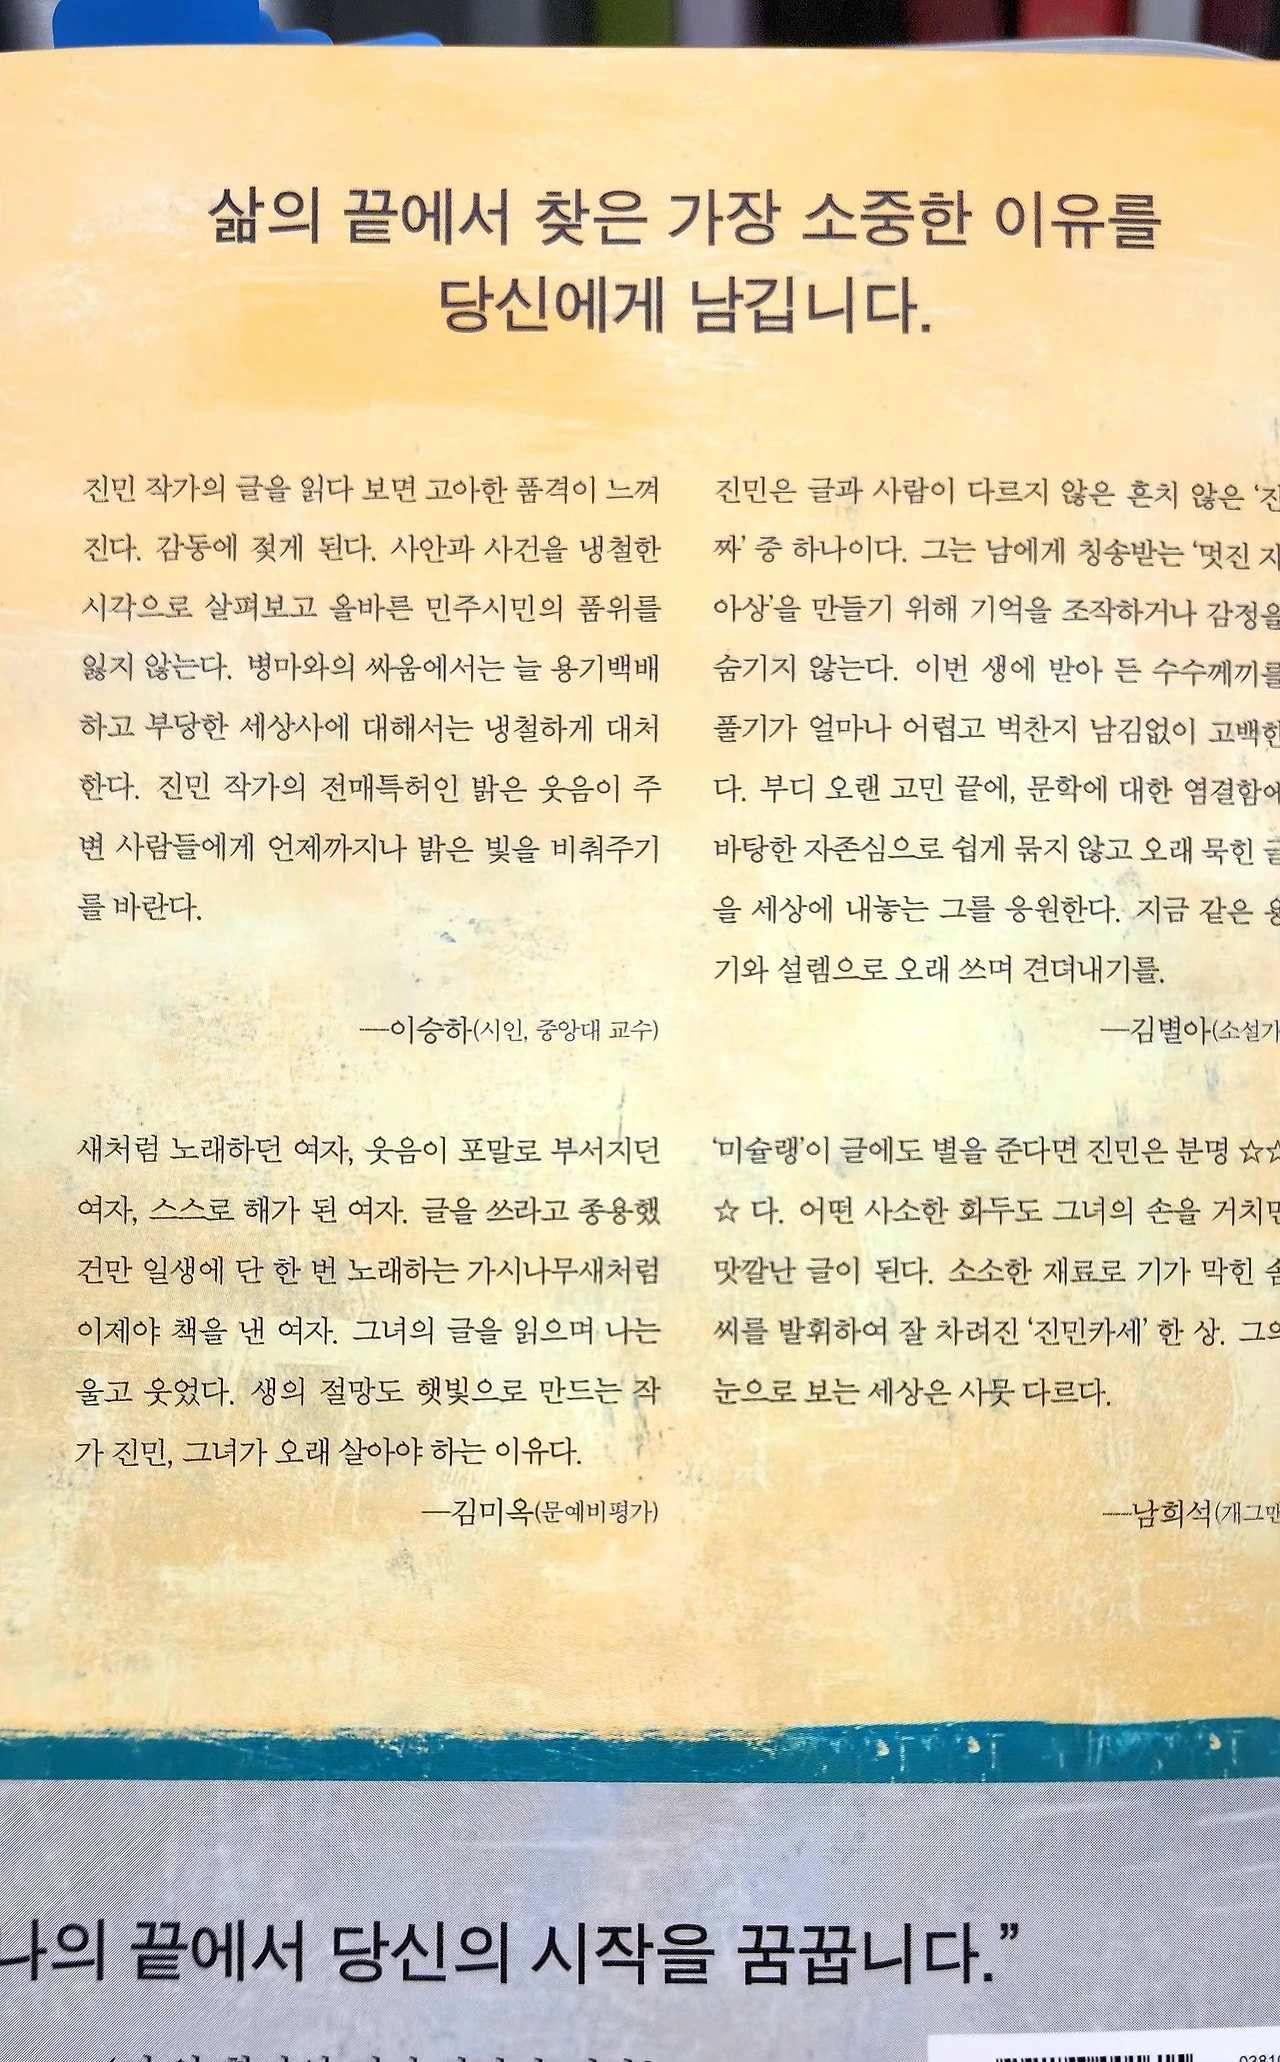 삶의 끝에서 찾은 가장 소중한 이유를
당신에게 남깁니다.
진민 작가의 글을 읽다 보면 고아한 품격이 느껴
진다. 감동에 젖게 된다. 사안과 사건을 냉철한
시각으로 살펴보고 올바른 민주시민의 품위를
잃지 않는다. 병마와의 싸움에서는 늘 용기백배
하고 부당한 세상사에 대해서는 냉철하게 대처
한다. 진민 작가의 전매특허인 밝은 웃음이 주
변 사람들에게 언제까지나 밝은 빛을 비춰주기
를 바란다.
—이승하(시인, 중앙대 교수)
진민은 글과 사람이 다르지 않은 흔치 않은 ‘진
짜’ 중 하나이다. 그는 남에게 칭송받는 ‘멋진 자
아상’을 만들기 위해 기억을 조작하거나 감정을
숨기지 않는다. 이번 생에 받아 든 수수께끼를
풀기가 얼마나 어렵고 벅찬지 남김없이 고백한
다. 부디 오랜 고민 끝에, 문학에 대한 염결함에
바탕한 자존심으로 쉽게 묶지 않고 오래 묵힌 글
을 세상에 내놓는 그를 응원한다. 지금 같은 용
기와 설렘으로 오래 쓰며 견뎌내기를.
—김별아(소설가
새처럼 노래하던 여자, 웃음이 포말로 부서지던
여자, 스스로 해가 된 여자. 글을 쓰라고 종용했
건만 일생에 단 한 번 노래하는 가시나무새처럼
이제야 책을 낸 여자. 그녀의 글을 읽으며 나는
울고 웃었다. 생의 절망도 햇빛으로 만드는 작
가 진민, 그녀가 오래 살아야 하는 이유다.
—김미옥(문예비평가)
‘미슐랭’이 글에도 별을 준다면 진민은 분명 ☆☆
☆ 다. 어떤 사소한 화두도 그녀의 손을 거치면
맛깔난 글이 된다. 소소한 재료로 기가 막힌 솜
씨를 발휘하여 잘 차려진 ‘진민카세’ 한 상. 그의
눈으로 보는 세상은 사뭇 다르다.
—남희석(개그맨
나의 끝에서 당신의 시작을 꿈꿉니다.”